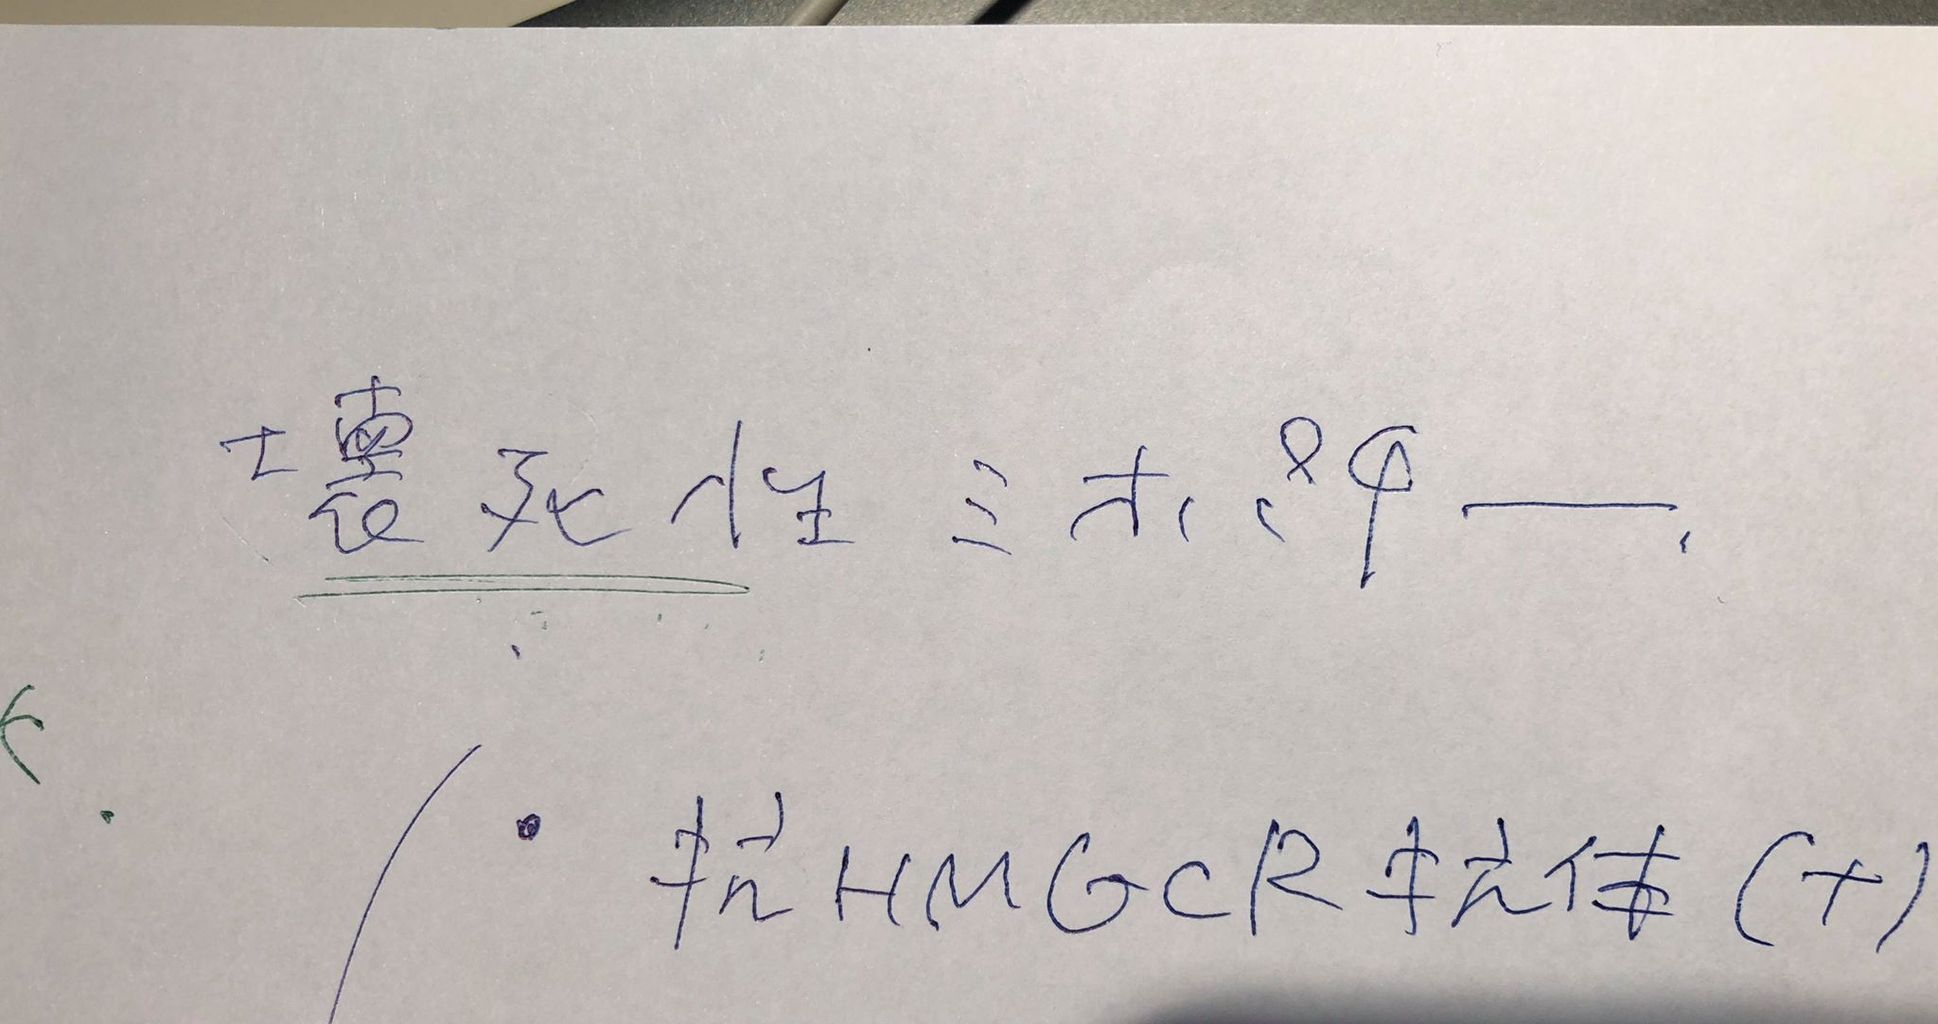 壊死性ミオパチー
・抗HMGCR抗体(+)